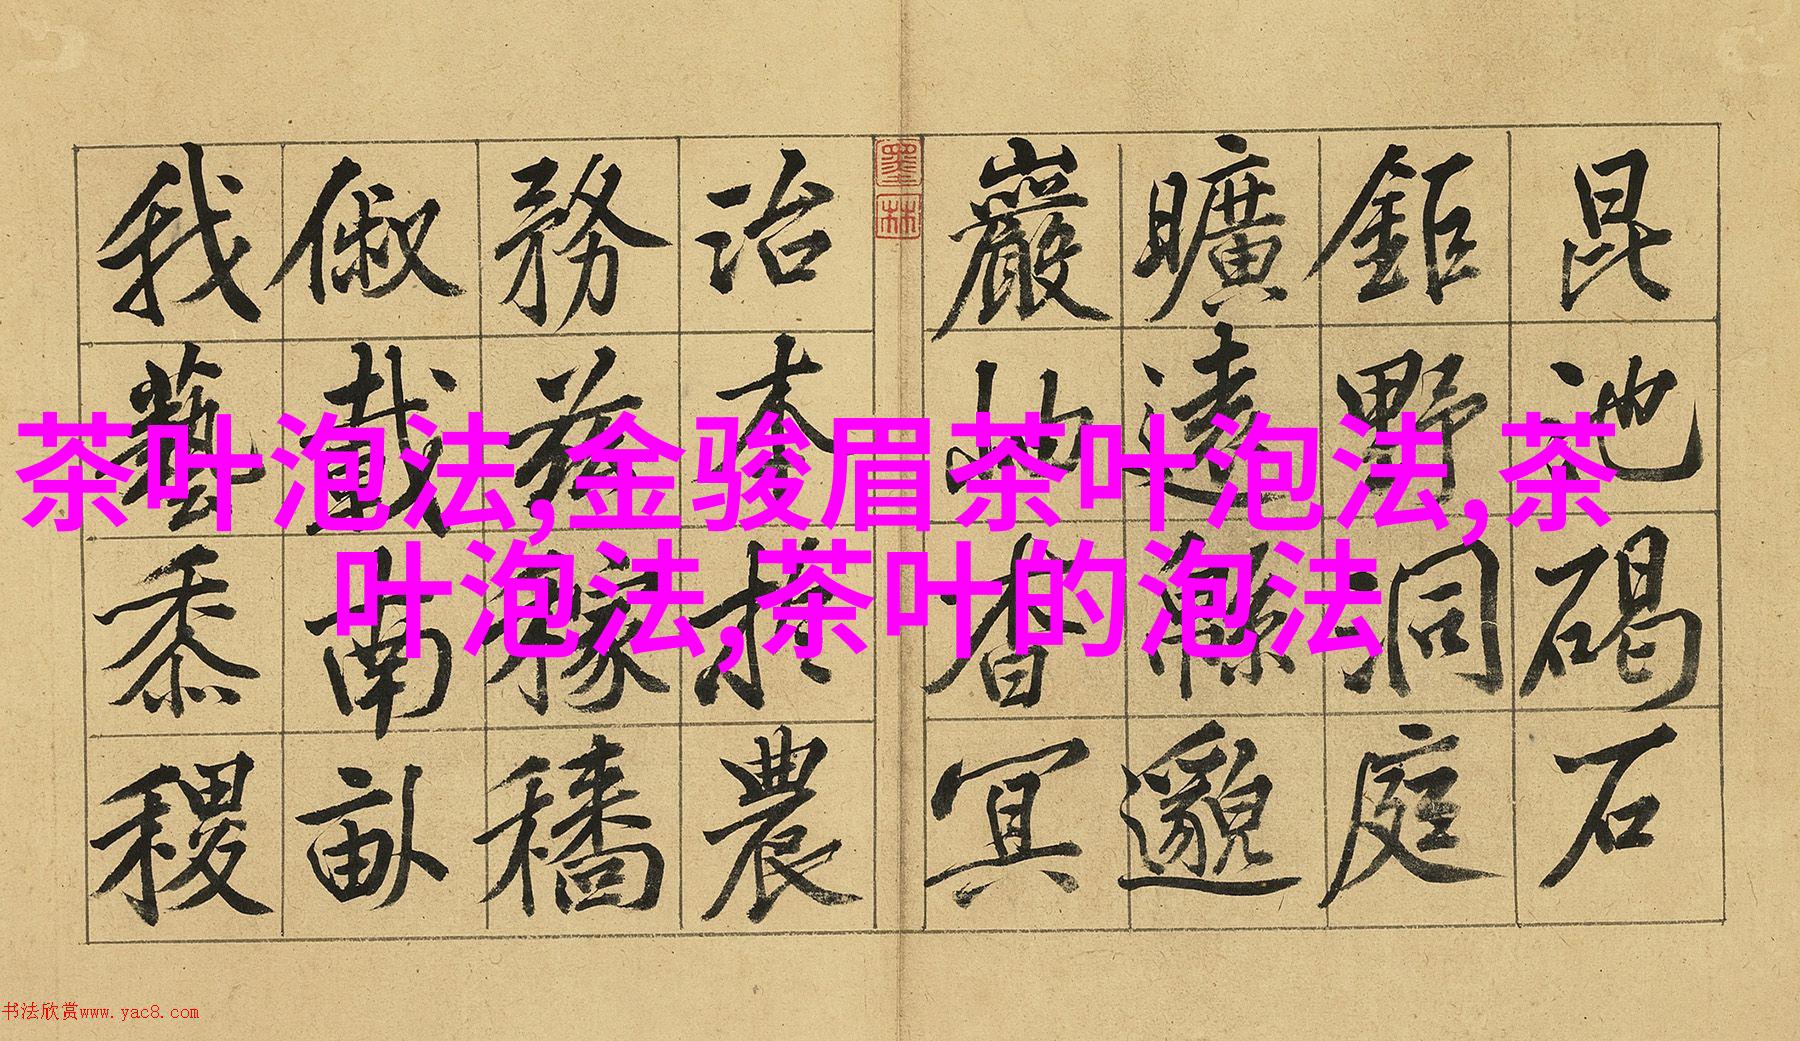 茶叶泡法,金骏眉茶叶泡法,茶
叶泡法,茶叶的泡法
昆池碣石
鉅野洞庭
曠遠緜邈
巖岫杳冥
墨林
治本於農
務茲稼穡
俶載南畝
我藝黍稷
书法欣赏www.yac8.com